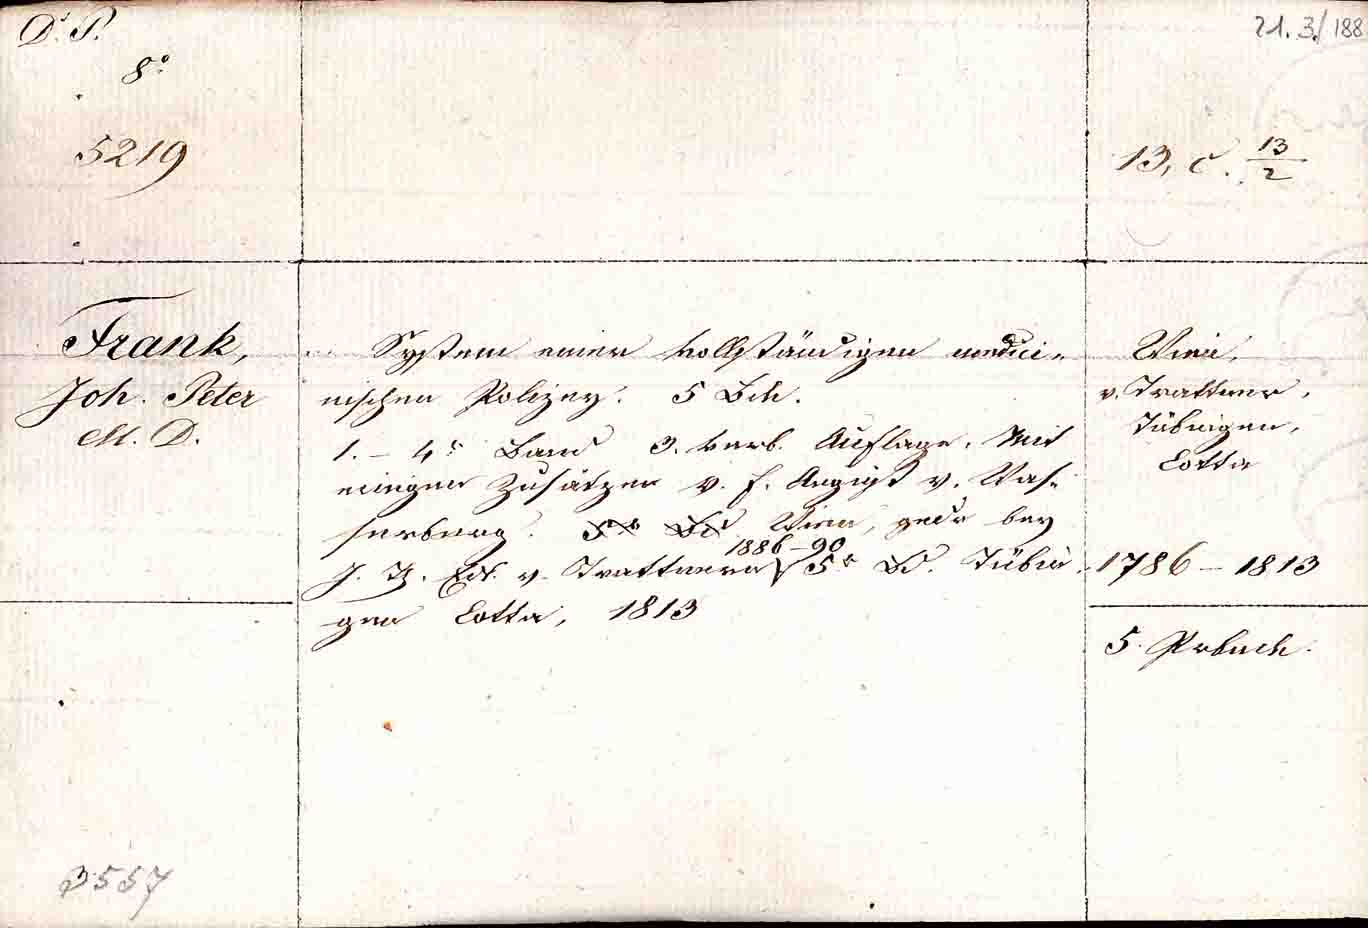 D. P.
8°
5219
21. 3./188
13, C. 13/2
Frank,
Joh. Peter
M. D.
System einer vollständigen medici-
nischen Polizey. 5 Bde.
1. – 4r Band 3. verb. Auflage. Mit
einigen Zusätzen v. f. Augigt v. Was-
serberg. 5r Bd Wien, gedr bey
1886–90
J. Th. Edl. v. Trattnern 5r Bd. Tübin-
gen Cotta, 1813
Wien,
v. Trattner,
Tübingen,
Cotta
1786 – 1813
5.
3557